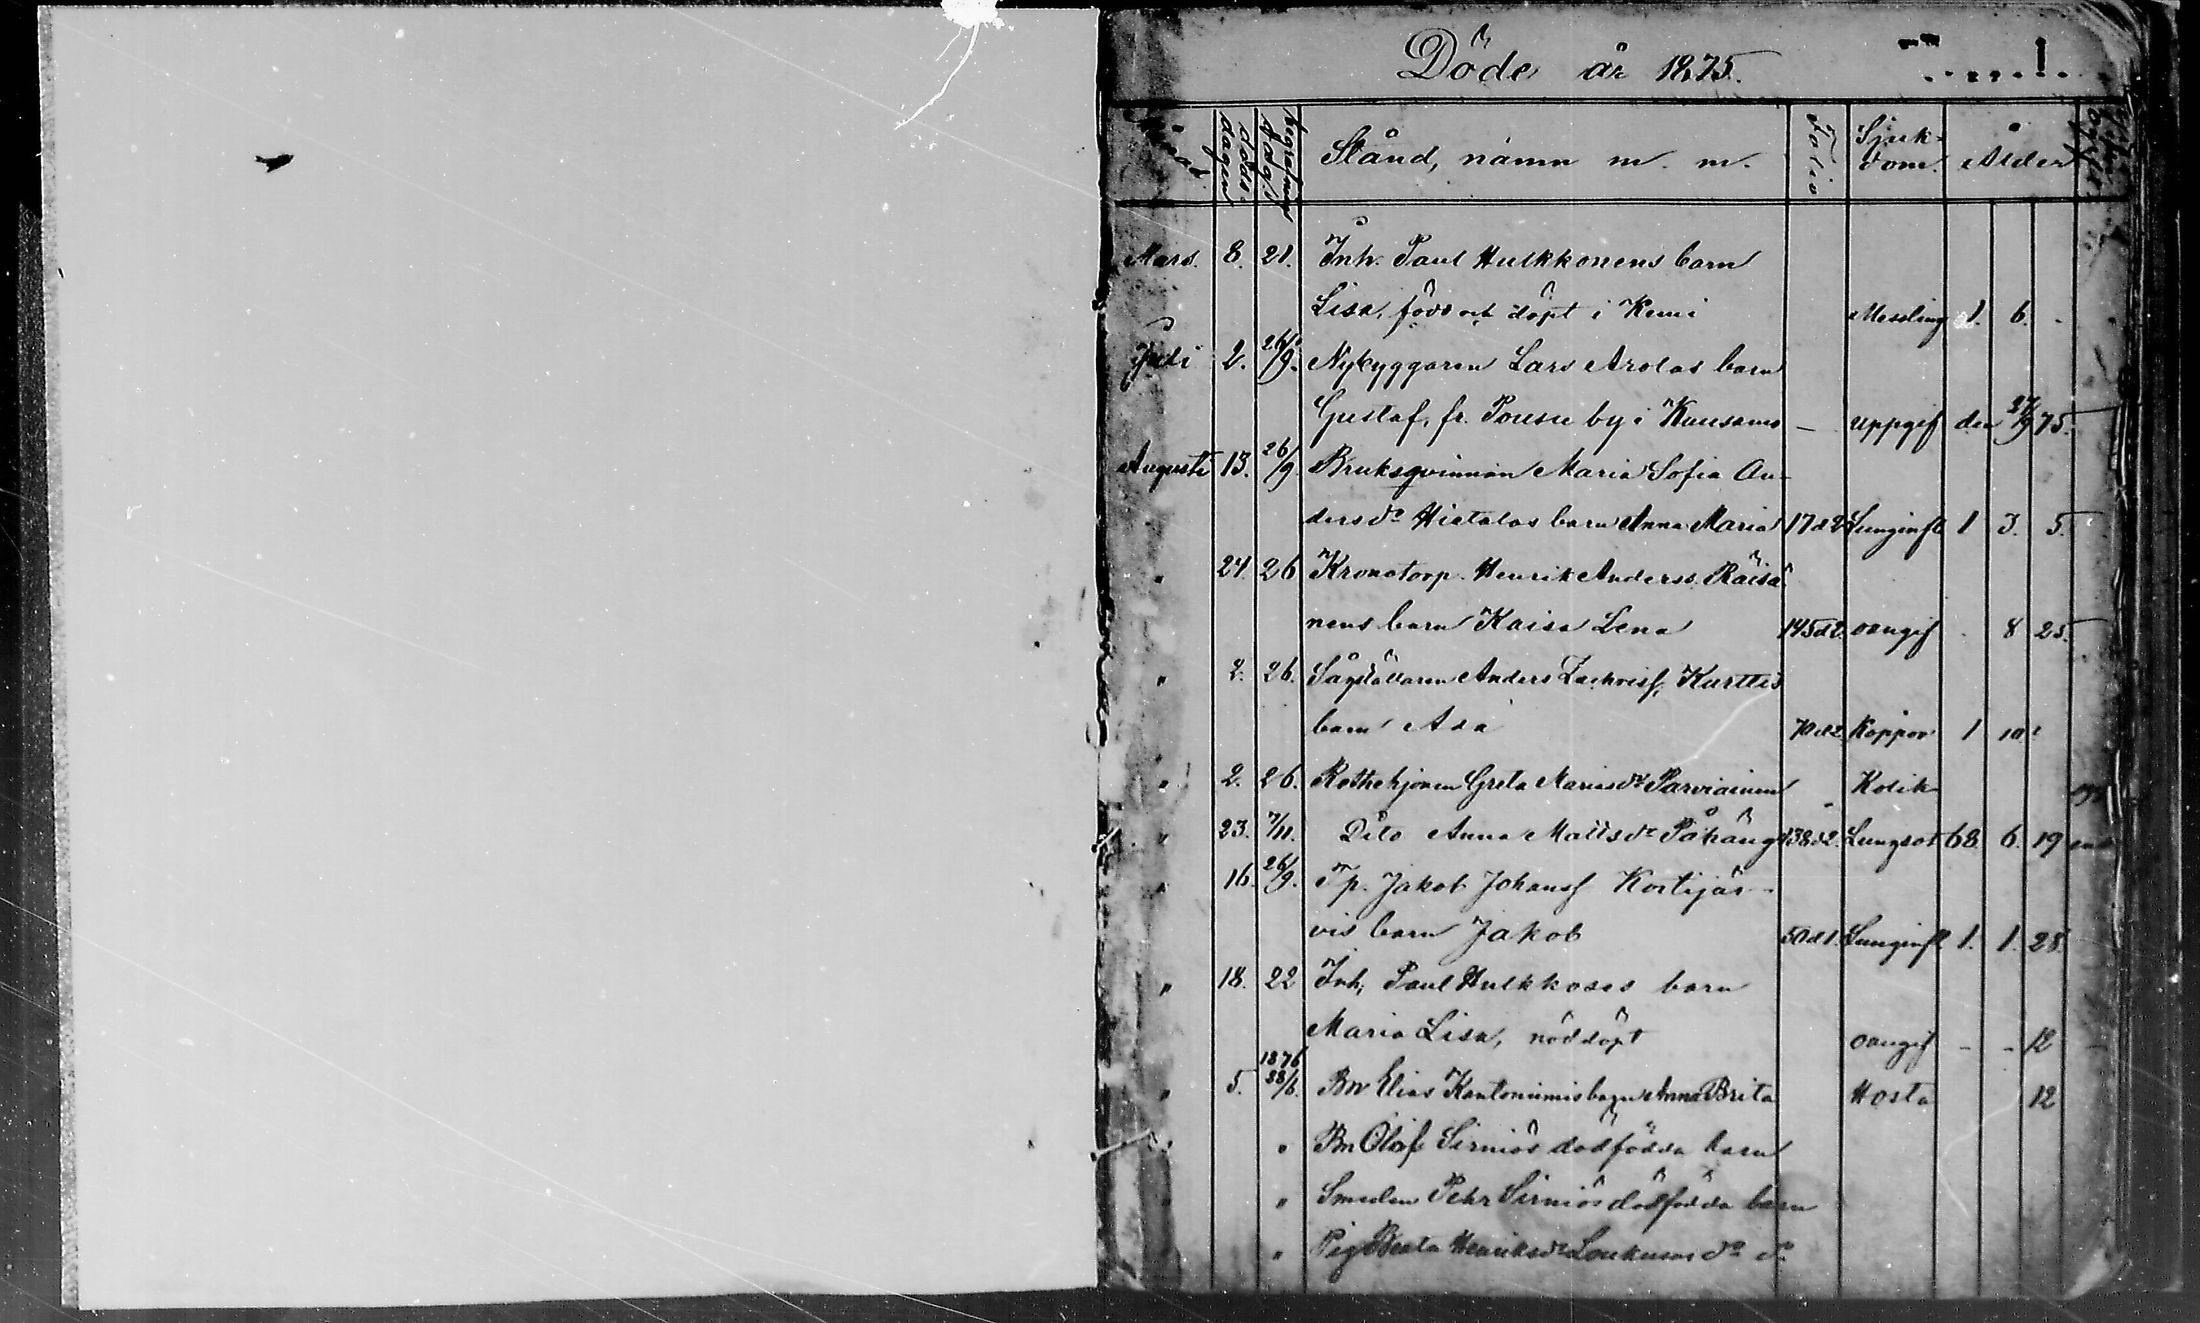 Döde år 1875.
Månad döds-dagen begrafnings dag Stånd, namn m. m. Folio Sjuk-dom. Ålder
Mars. 8. 21. Inh. Paul Hulkkonens barn
Lisa, född och döpt i Kemi Messling 1. 6. -
Juli 2. 26/9. Nybyggaren Lars Arolas barn
Gustaf, fr. Pousu by i Kuusamo — uppgif den 27/9 75.
Augusti 13. 26/9 Bruksqvinnan Maria Sofia An-
dersdr Hietalas barn Anna Maria 17 d 2 Lunginfl 1 3. 5.
" 24 26 Kronotorp. Henrik Anderss. Räisä
nens barn Kaisa Lena 145 d 2. oangif . 8 25.
" 2. 26. Anders Kurttis
barn Ada 70 d 2 Koppor 1 10
" 2. 26. Rothehjonen Greta Mariasdr Parviainen " Kolik
" 23. 7/11. Dito Anna Mattsdr Påhäng 138 d 2. Lungsot 68. 6. 19
" 16. 26/9. Tp. Jakob Johansf Kortijär-
vis barn Jakob 50 d 1. Lunginfl 1. 1. 28
" 18. 22 Inh. Paul Hulkkoses barn
Maria Lisa, nöddöpt oangif - - 12
1876
" 5. Bn Elias Kantoniemis barn Anna Brita Hosta 12
" Bn Olof Sirniös dödfödda barn
" Smeden Pehr Sirniös dödfödda barn
" Pig Beata Henriksdr Loukusas do do